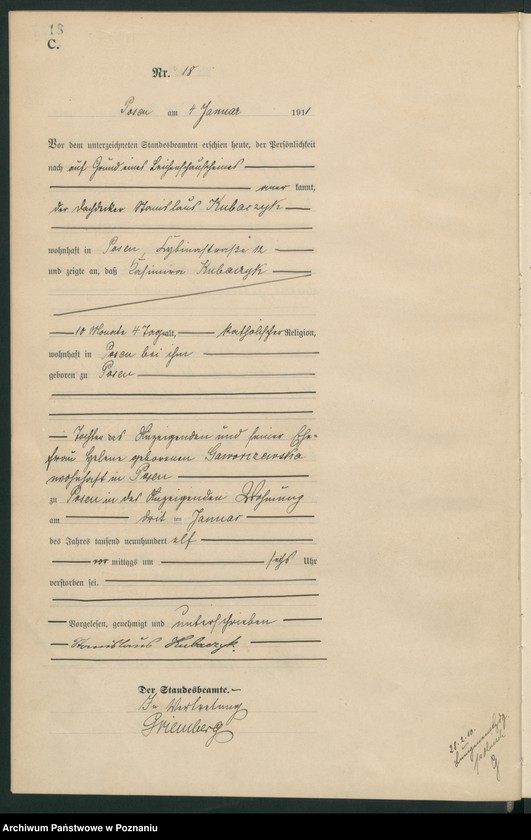 18
C.
Nr. 18
Posen am 4 Januar 1911
Vor dem unterzeichneten Standesbeamten erschien heute, der Persönlichkeit
nach auf Grund eines Leichenschauscheines
aner kannt,
der Dachdecker Stanislaus Kubaczyk
wohnhaft in Posen, Kybinastraße 12
und zeigte an, daß Kasimira Kubaczyk
10 Monate 4 Tage alt, katholischer Religion,
wohnhaft in Posen bei ihm
geboren zu Posen
Tochter des Anzeigenden und seiner Ehe-
frau Helene geborenen
wohnhaft in Posen
zu Posen in des Anzeigenden Wohnung
am drit ten Januar
des Jahres tausend neunhundert elf
vor mittags um sechs Uhr
verstorben sei.
Vorgelesen, genehmigt und unterschrieben
Stanislaus Kubaczyk.
Der Standesbeamte.
In Vertretung
28.2.10.
Archiwum Państwowe w Poznaniu